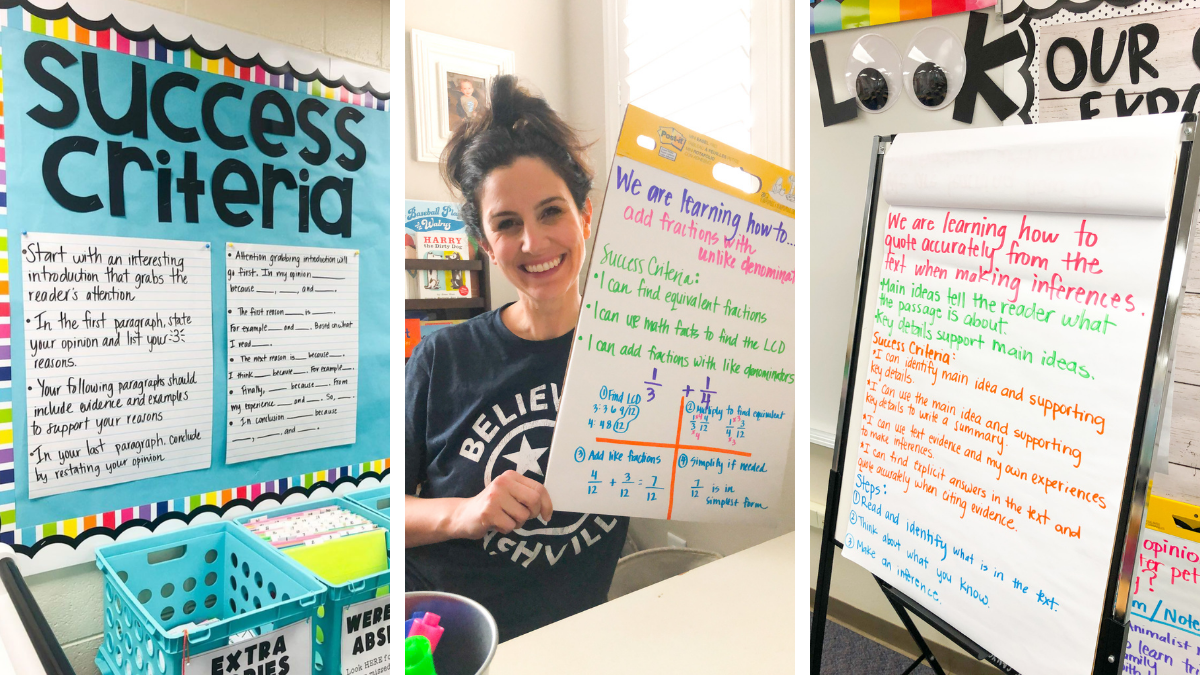 success
criteria
• Start with an interesting
introduction that grabs the
reader's attention
• In the first paragraph, state
your opinion and list your 3
reasons.
• Your following paragraphs should
include evidence and examples
to support your reasons
• In your last paragraph, conclude
by restating your opinion
• Attention grabbing introduction will
go first. In my opinion
because , , and .
• The first reason is .
For example and . Based on what
I read .
• The most reason is because .
I think because . For example .
• Finally, because . From
my experience and . So, .
• In conclusion because
, , and .
EXTRA
WERE
ABS
Look HERE
Baseball
Walrus
HARRY
the Dirty Dog
BELIEV
NASHVILL
Post-it
We are learning how to...
add fractions with
unlike denominat
Success Criteria:
• I can find equivalent fractions
• I can use math facts to find the LCD
• I can add fractions with like denominators
1/3 + 1/4
① Find LCD
3: 3 6 9 12
4: 4 8 12
② Multiply to find equivalent
1/3 ×4 ×4 4/12 1/4 ×3 ×3 3/12
③ Add like fractions
4/12 + 3/12 = 7/12
④ Simplify if needed
7/12 is in
simplest form
LOOK
OUR
EXP
We are learning how to
quote accurately from the
text when making inferences.
Main ideas tell the reader what
the passage is about.
Key details support main ideas.
Success Criteria:
• I can identify main idea and supporting
key details.
• I can use the main idea and supporting
key details to write a summary.
• I can use text evidence and my own experiences
to make inferences.
• I can find explicit answers in the text and
quote accurately when citing evidence.
Steps:
① Read and identify what is in the text.
② Think about what you know.
③ Make an inference.
opinio
pet
?
m/Note
Animalist
learn